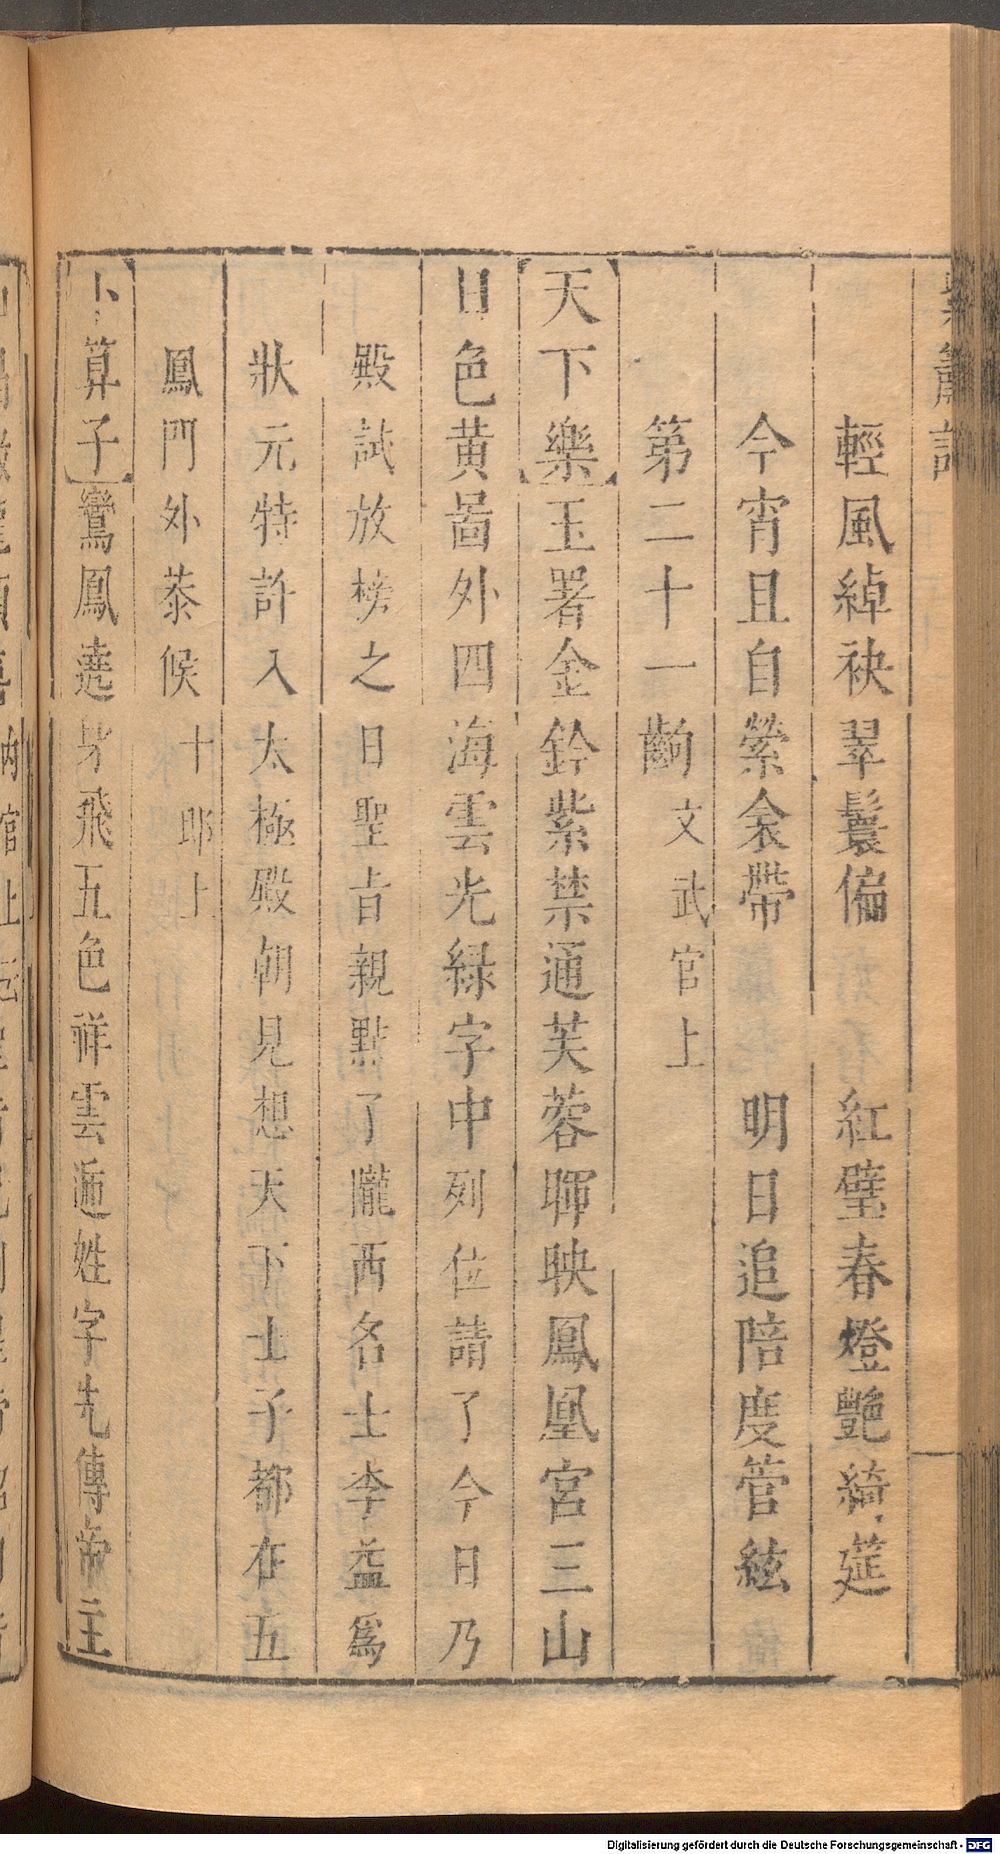 紫簫記
輕風綽袂翠鬟偏　紅璧春燈艶綺筵
今宵且自縈衾帶　明日追陪度管絃
第二十一齣 文武官上
【天下樂】玉署金鈴紫禁通芙蓉暉映鳳凰宮三山
日色黄啚外四海雲光緑字中列位請了今日乃
殿試放榜之日聖旨親點了隴西名士李益爲
狀元特許入太極殿朝見想天下士子都在五
鳳門外恭候 十郎上
【卜算子】鸞鳳遶身飛五色祥雲遍姓字先傳帝主
Digitalisierung gefördert durch die Deutsche Forschungsgemeinschaft - DFG